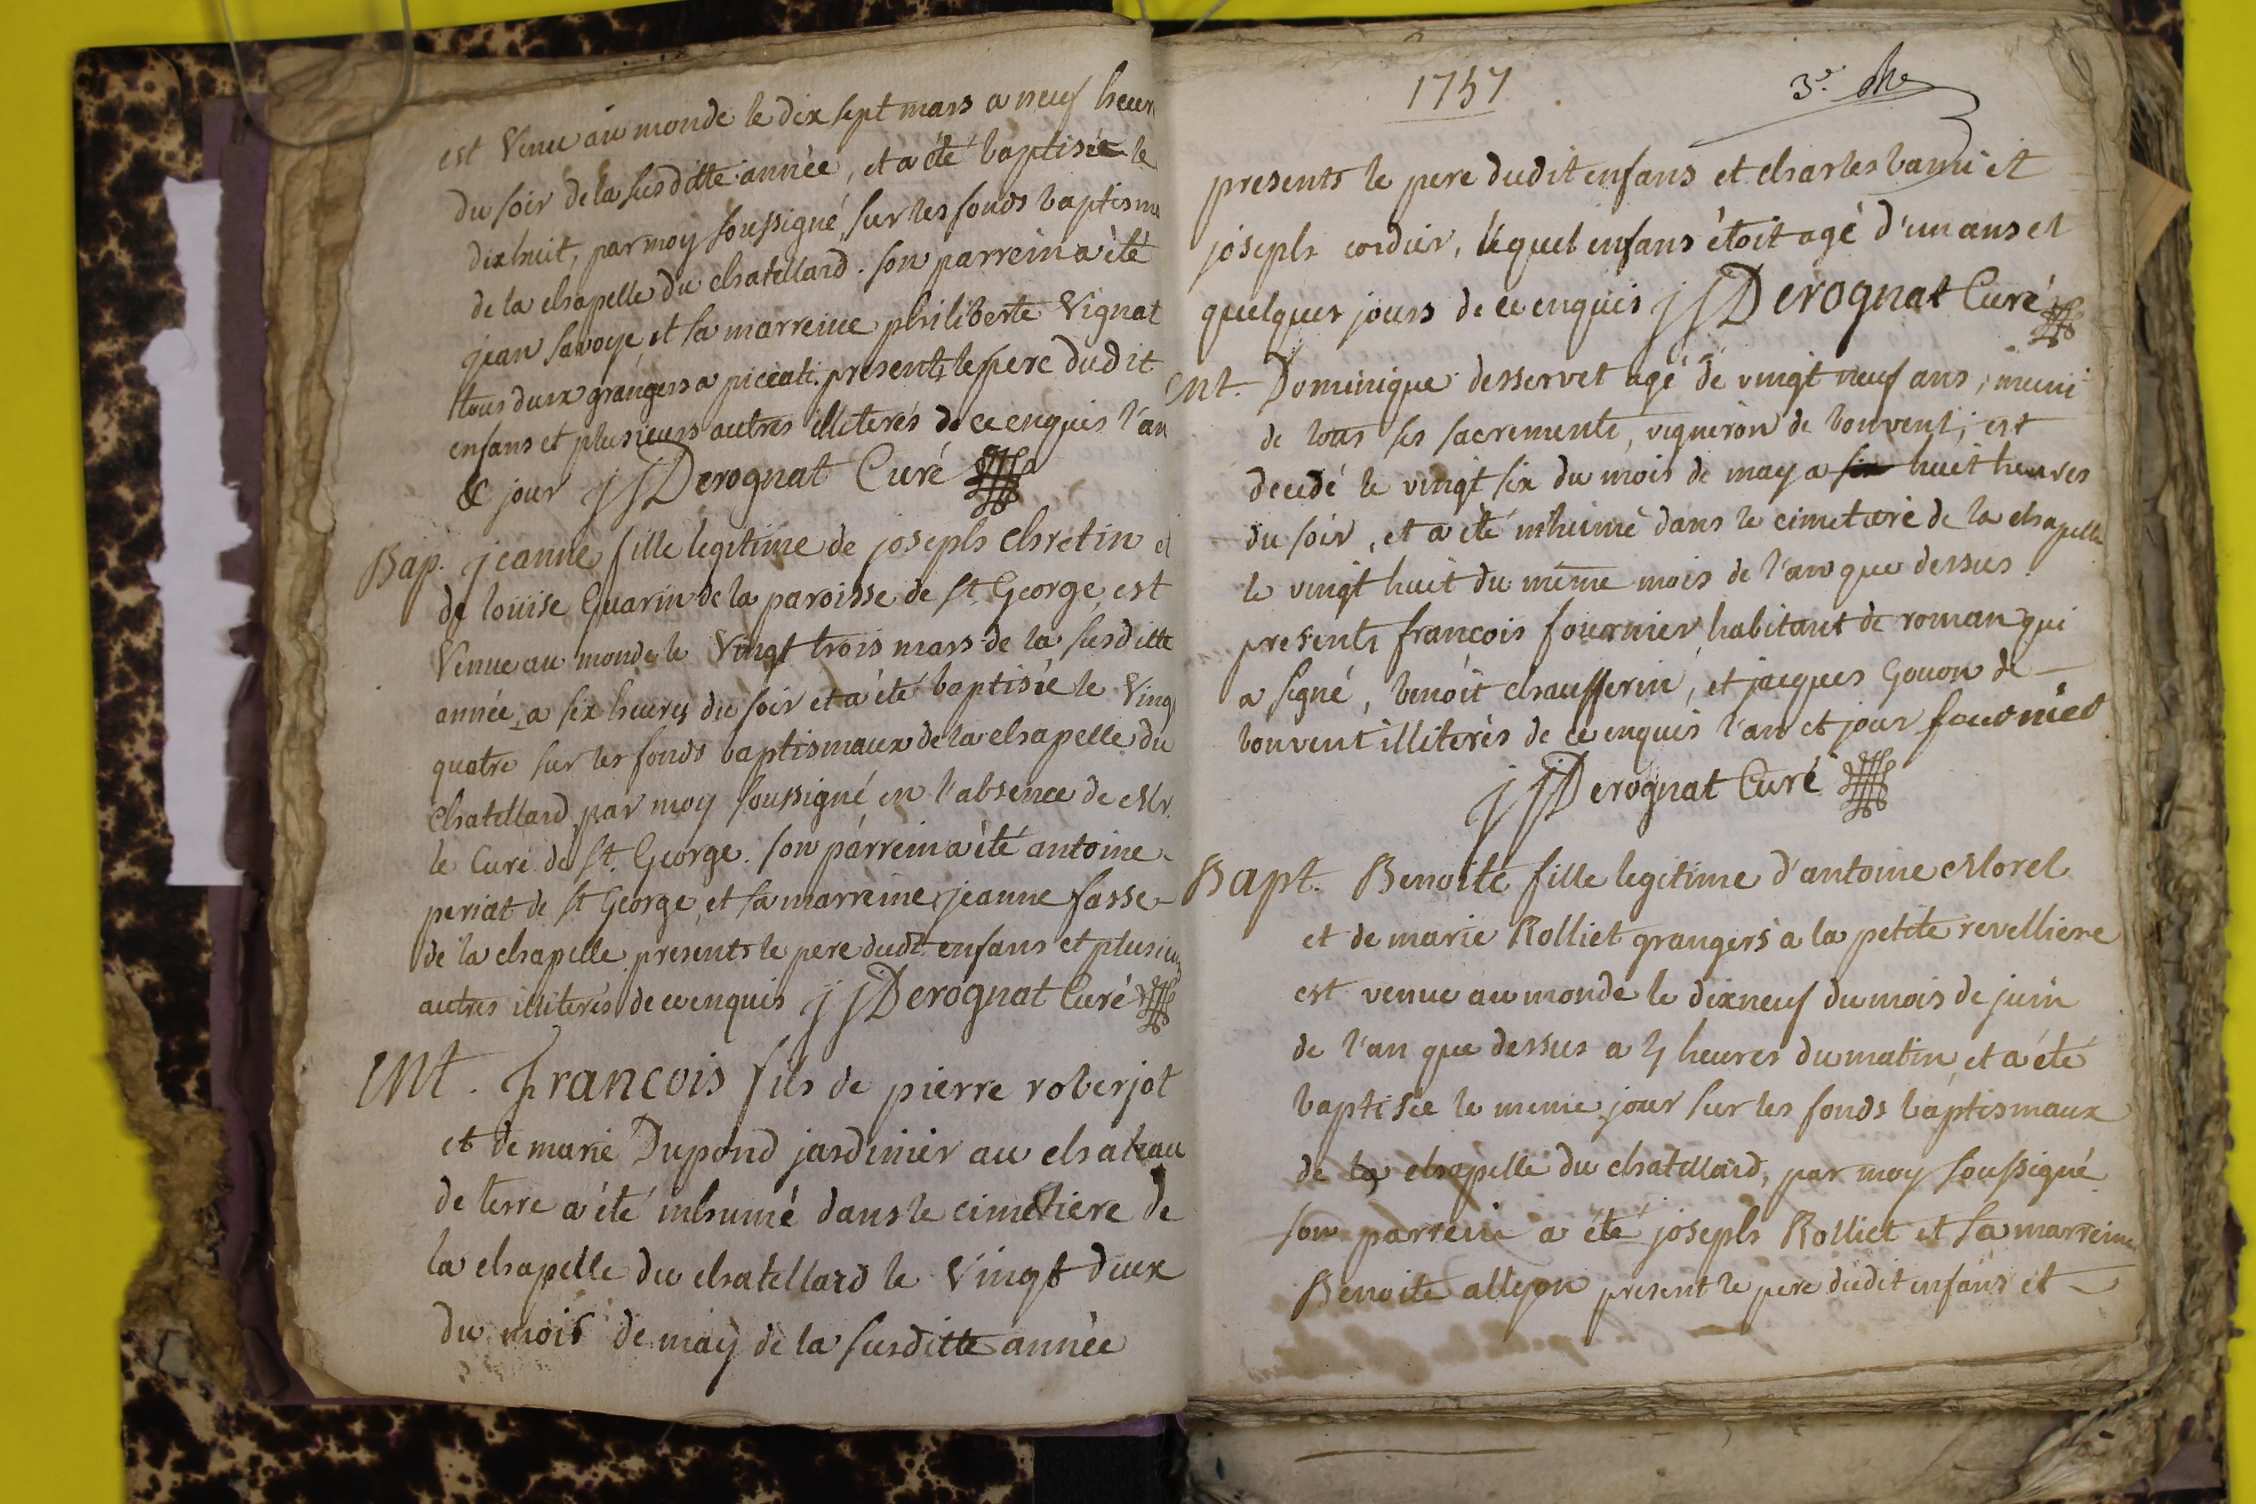 est Venue au monde le dix sept mars a neuf heur
du soir de la susditte année, et a été baptisée le
dix huit, par moy soussigné sur les fonds baptism
de la chapelle du chatellard. son parrein a été
jean savoye, et sa marreine philiberte Vignat
tous deux grangers a piccati. presents le pere dudit
enfans et plusieurs autres illiterés de ce enquis l'an
& jour j j Derognat Curé
Bap. jeanne fille legitime de joseph Chretin et
de loüise Guarin de la paroisse de St. George, est
Venue au monde le Vingt trois mars de la susditte
année, a six heures du soir et a été baptisée le Ving
quatre sur les fonds baptismaux de la chapelle du
chatellard par moy soussigné en l'absence de Mr.
le Curé de St. George. son parrein a été antoine
periat de St George, et sa marreine jeanne fasse
de la chapelle presents le pere dudt enfans et plusieu
autres illiterés de ce enquis j j Derognat Curé
Int. François fils de pierre roberjot
et de marie Dupond jardinier au chateau
de terre a été inhumé dans le cimetiere de
la chapelle du chatellard le Vingt deux
du mois de may de la susditte année
1757
3e.
presents le pere dudit enfans et charles et
joseph cordier, lequel enfans étoit agé d'un ans et
quelques jours de ce enquis j j Derognat Curé
Int. Dominique desservet agé de vingt neuf ans, muni
de tous ses sacrements, vigneron de bouvent; est
decedé le vingt six du mois de may a six huit heures
du soir, et a été inhumé dans le cimetiere de la chapelle
le vingt huit du même mois de l'an que dessus
presents francois fournier habitant de roman qui
a signé, benoît chausserin, et jacques Gouon de
bouvent illiterés de ce enquis l'an et jour fournier
j j Derognat Curé
Bapt. Benoite fille legitime d'antoine Morel
et de marie Rolliet grangers a la petite revelliere
est venue au monde le dixneuf du mois de juin
de l'an que dessus a heures du matin et a été
baptisée le meme jour sur les fonds baptismaux
de la chapelle du chatellard, par moy soussigné
son parrein a été joseph Rolliet et sa marreine
Benoite alleyon present le pere dudit enfans et